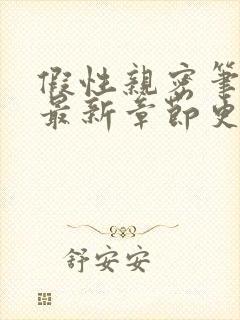 假性親密筆
最新章節史
舒安安